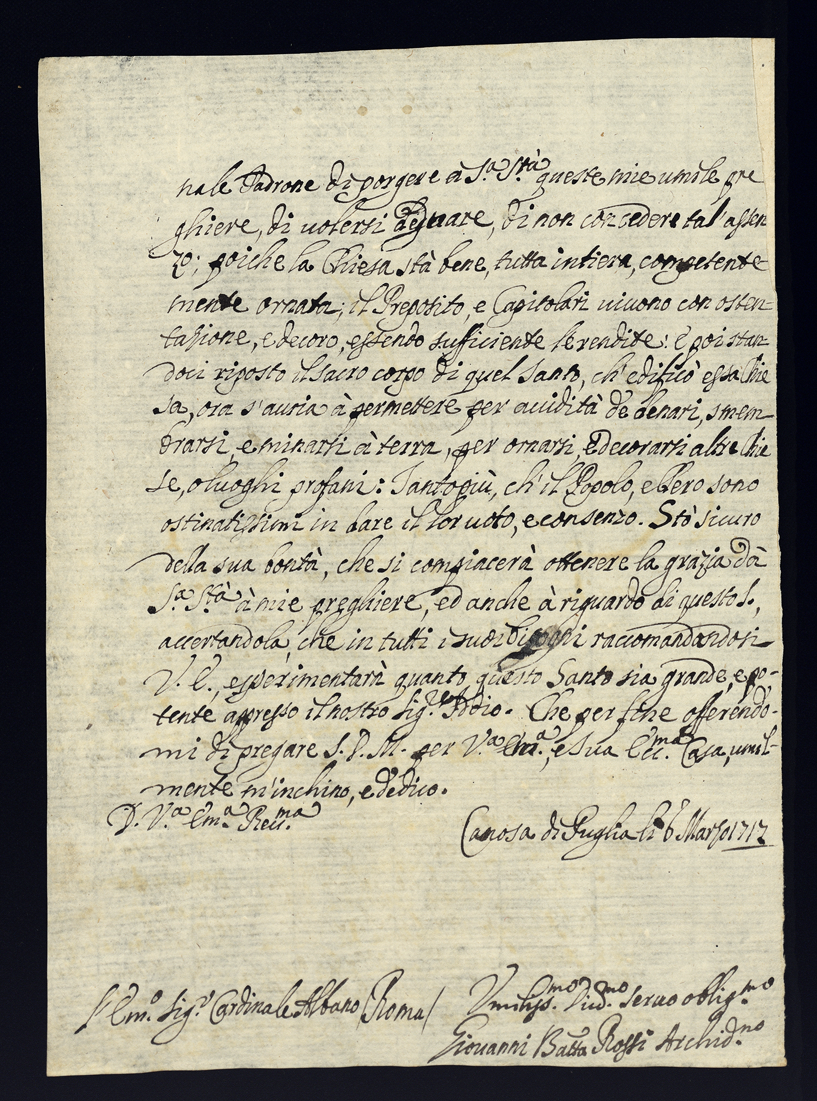 nale Padrone di porgere a S.ª S.tà queste mie umile pre
ghiere, di volersi degnare, di non concedere tal' assen
zo; poiche la Chiesa stà bene, tutta intiera, competente
mente ornata; il Preposito, e Capitolari vivono con osten-
tazione, e decoro, essendo sufficiente le rendite: e poi stan-
doci riposto il sacro corpo di quel Santo, ch' edificò essa Chie
sa, ora s' auria à permettere per avidità de denari, smem-
brarsi, e minarsi à terra, per ornarsi, e decorarsi altre Chie
se, o luoghi profani: Tanto più, ch' il Popolo, e Clero sono
ostinatissimi in dare il lor voto, e consenzo. Stò sicuro
della sua bontà, che si compiacerà ottenere la grazia dà
S.ª S.tà à mie preghiere, ed anche à riguardo di questo S.,
accertandola, che in tutti i suoi bisogni raccomandandosi
V. E., esperimentarà quanto questo Santo sia grande, e po-
tente appresso il nostro Sig.re Iddio. Che per fine offerendo-
mi di pregare S. D. M. per V.ª Em.ª, e sua Ecc.ma Casa, umil-
mente m' inchino, e dedico.
D. V.ª Em.ª Reu.ma
Canosa di Puglia li 6 Marzo 1717
Em.º Sig.r Cardinale Albano (Roma)
Vmiliss.mo Diu.mo Seruo oblig.mo
Giovanni Batta Rossi Archid.no